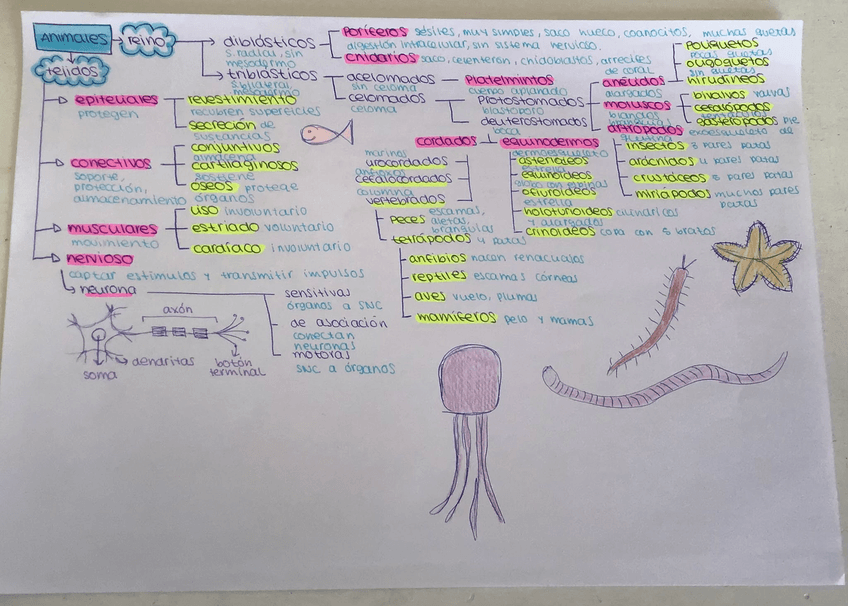 ANIMALES
reino
tejidos
diblásticos
s. radial, sin
mesodermo
triblásticos
s. bilateral,
mesodermo
poríferos sésiles, muy simples, saco hueco, coanocitos, muchas
digestión intracelular, sin sistema nervioso.
cnidarios saco, celenterón, cnidoblastos, arrecifes
de coral
acelomados
sin celoma
platelmintos
cuerpo aplanado
celomados
celoma
protostomados
blastóporo
deuterostomados
boca
anélidos
alargados
moluscos
blandos
artrópodos
exoesqueleto de
quitina
oligoquetos
sin quetas
hirudíneos
bivalvos valvas
cefalópodos
tentáculos
gasterópodos pie
insectos 3 pares patas
arácnidos 4 pares patas
crustáceos 5 pares patas
miriápodos muchos pares
patas
cordados
equinodermos
dermoesqueleto
marinos
urocordados
cefalocordados
columna
vertebrados
asteroideos
estrella
equinoideos
globo con espinas
ofiuroideos
estrella
holoturoideos cilíndricos
y alargados
crinoideos copa con 5 brazos
peces escamas,
aletas,
branquias
tetrápodos 4 patas
anfibios nacen renacuajos
reptiles escamas córneas
aves vuelo, plumas
mamíferos pelo y mamas
epiteliales
protegen
revestimiento
recubren superficies
secreción de
sustancias
conectivos
soporte,
protección,
almacenamiento
conjuntivos
almacena
cartilaginosos
sostiene
óseos protege
órganos
musculares
movimiento
liso involuntario
estriado voluntario
cardíaco involuntario
nervioso
captar estímulos y transmitir impulsos
neurona
sensitivas
órganos a SNC
de asociación
conectan
neuronas
motoras
SNC a órganos
axón
dendritas
botón
terminal
soma